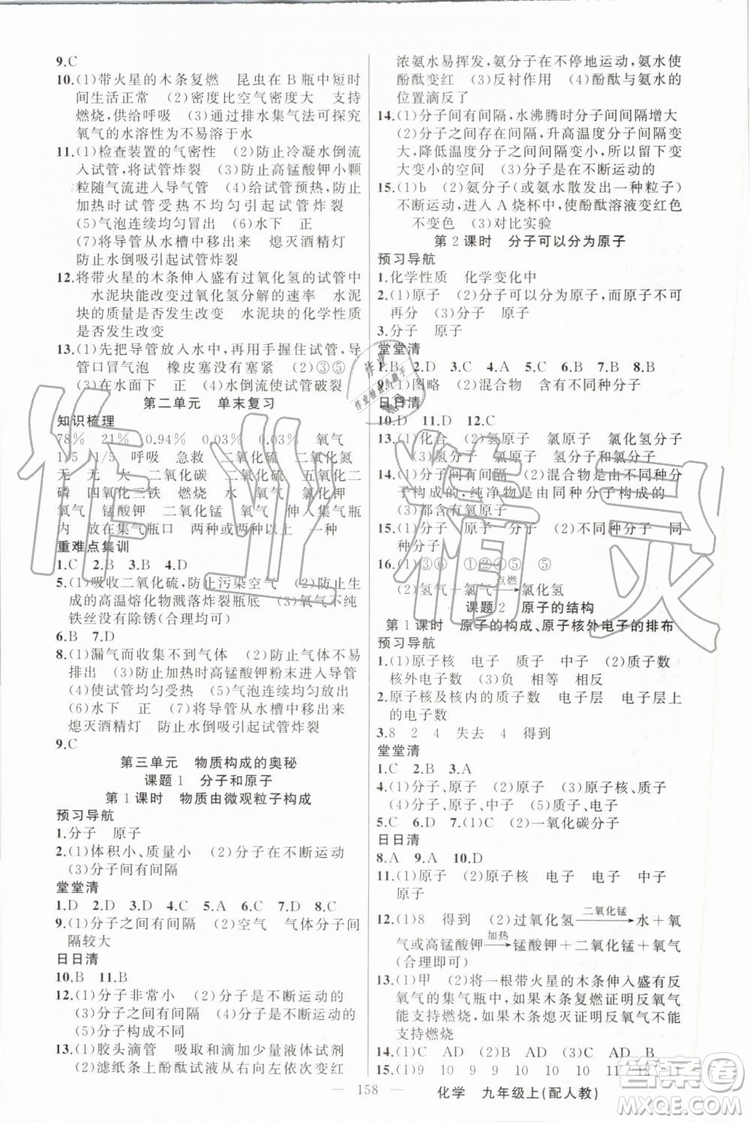 9.C
10.(1)带火星的木条复燃　昆虫在B瓶中短时
间生活正常　(2)密度比空气密度大　支持
燃烧，供给呼吸　(3)通过排水集气法可探究
氧气的水溶性为不易溶于水
11.(1)检查装置的气密性　(2)防止冷凝水倒流
入试管，将试管炸裂　(3)防止高锰酸钾小颗
粒随气流进入导气管　(4)给试管预热，防止
加热时试管受热不均匀引起试管炸裂
(5)气泡连续均匀冒出　(6)水下　正
(7)将导管从水槽中移出　熄灭酒精灯
防止水倒吸引起试管炸裂
12.将带火星的木条伸入盛有过氧化氢的试管中
水泥块能改变过氧化氢分解的速率　水泥
块的质量是否发生改变　水泥块的化学性质
是否发生改变
13.(1)先把导管放入水中，再用手握住试管，导
管口冒气泡　橡皮塞没有塞紧　(2)气泡
(3)试管　(4)防止水倒吸引起试管破裂
第二单元　单末复习
知识梳理
78%　21%　0.94%　0.03%　0.03%　氧气
1/5　1/5　呼吸　三　二氧化硫　二氧化硫
无　无　大　二氧化碳　二氧化碳　五氧化二
磷　四氧化三铁　燃烧　二　氧气　氯化钾
氧气　锰酸钾　二氧化锰　氧气　伸入集气瓶
内　放在集气瓶口　两种或两种以上　一种
重难点集训
1.C　2.B　3.B　4.D
5.(1)吸收二氧化硫，防止污染空气　(2)防止生成
的高温熔化物溅落炸裂瓶底　(3)氧气不纯
铁丝没有除锈(合理均可)
6.B　7.D
8.(1)漏气而收集不到氧气　(2)防止局部过热
(3)排尽空气　(4)防止加热时高锰酸钾粉末进入导
管　(5)使试管均匀受热　(6)导管移出水面
熄灭酒精灯　防止水倒吸引起试管炸裂
9.C
第三单元　物质构成的奥秘
课题1　分子和原子
第1课时　物质由微观粒子构成
预习导航
1.分子　原子
2.(1)体积小、质量小　(2)分子在不断运动
(3)分子间有间隔
堂堂清
1.D　2.D　3.A　4.C　5.A　6.B　7.B　8.B
9.(1)分子之间有间隔　(2)空气　气体分子间
隔较大
日日清
10.B　11.B
12.(1)分子非常小　(2)分子是不断运动的
(3)分子之间有间隔　(4)分子是不断运动的
(5)分子构成不同
13.(1)胶头滴管　吸取和滴加少量液体试剂
(2)滤纸条上酚酞试液由右向左依次变红
浓氨水易挥发，氨分子在不停地运动，氨水能
使酚酞变红　(3)反衬作用　(4)酚酞和氨水的
位置滴反了
14.(1)分子间有间隔，水沸腾时分子间间隔增大
(2)分子间有间隔，升高温度分子间间隔变
大，降低温度分子间间隔变小，所以热胀冷缩
15.(1)b　(2)氨分子(或氨水散发出一种粒子)
不断运动，进入A烧杯中，使酚酞溶液变红色
不变色　(3)对比实验
第2课时　分子可以分为原子
预习导航
1.化学性质　化学变化中
2.(1)原子　(2)分子可以分为原子　原子可以
再次组合　(3)不可再分
3.分子　原子
堂堂清
1.B　2.A　3.C　4.B　5.B　6.B　7.D　8.B
9.(1)图略　(2)混合物　(3)分子
日日清
10.D　11.D　12.C
13.(1)化合　(2)氢原子　氯原子　氯化氢分子
(3)分子　原子
14.(1)分子间有间隔　(2)混合物是由不同种分子
构成的，纯净物是由同种分子构成的
(3)都含有氧原子
15.(1)不同种分子　(2)不同种分子　同种分子　同
种分子
16.(1)③⑥　①②⑤　⑤
(2)氢气＋氯气 点燃→ 氯化氢
课题2　原子的结构
第1课时　原子的构成、原子核外电子的排布
预习导航
1.(1)原子核　电子　质子　中子　(2)质子数
核外电子数　(3)正　负　相等　相反
2.原子核及核内的质子数　电子层　电子层上
的电子数
3.8　2　4　失去　4　得到
堂堂清
1.C　2.B　3.A
4.(1)分子、原子　(2)原子　(3)原子核、质子、
中子、电子　(4)原子　(5)质子、电子
5.C　6.D　7.(1)A、C　(2)一氧化碳分子
日日清
8.A　9.A　10.D
11.原子核　电子　质子　电子　中子　原子
原子
12.(1)8　得到　(2)过氧化氢 二氧化锰→ 水＋氧
气或高锰酸钾 加热→ 锰酸钾＋二氧化锰＋氧气
(合理即可)
13.(1)甲　(2)将一根带火星的木条伸入盛有反
氧气的集气瓶中，如果木条复燃证明反氧气
能支持燃烧，如果木条不复燃证明反氧气不
支持燃烧
14.(1)C　AD　(2)AD　(3)C　(4)B
158
化学　九年级上(配人教)